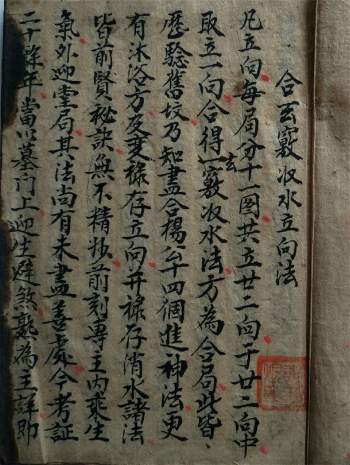 合玄竅收水立向法
凡立向每局分十一圖共立廿二向于廿二向中
取立一向合得一玄竅收水法方為合局此皆
歷驗舊坟乃知盡合楊公十四個進神法更
有沐浴方反变祿存立向并祿存消水諸法
皆前賢秘訣無不精妙前刻專主內乘生
氣外迎堂局其法尚有未盡善處今考証
二十餘年當以墓门上迎生避煞熟為主詳即